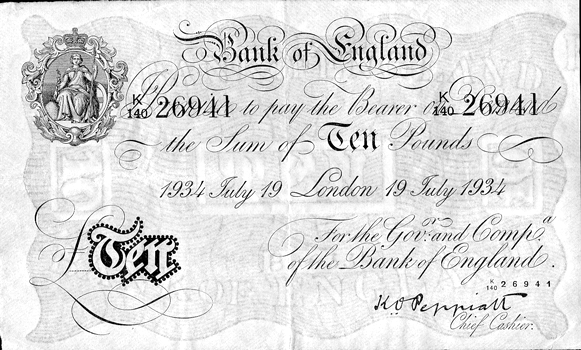 Bank of England
K/140 26941 to pay the Bearer on K/140 26941
the Sum of Ten Pounds
1934 July 19 London 19 July 1934
For the Govr. and Compa.
of the Bank of England.
£Ten
K/140 26941
K O Peppiatt
Chief Cashier.